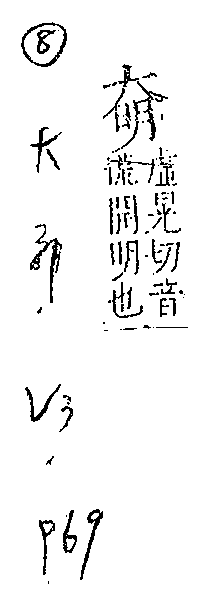 ⑧
大
部
.
V3
.
p69
奛
虛晃切音
謊開明也